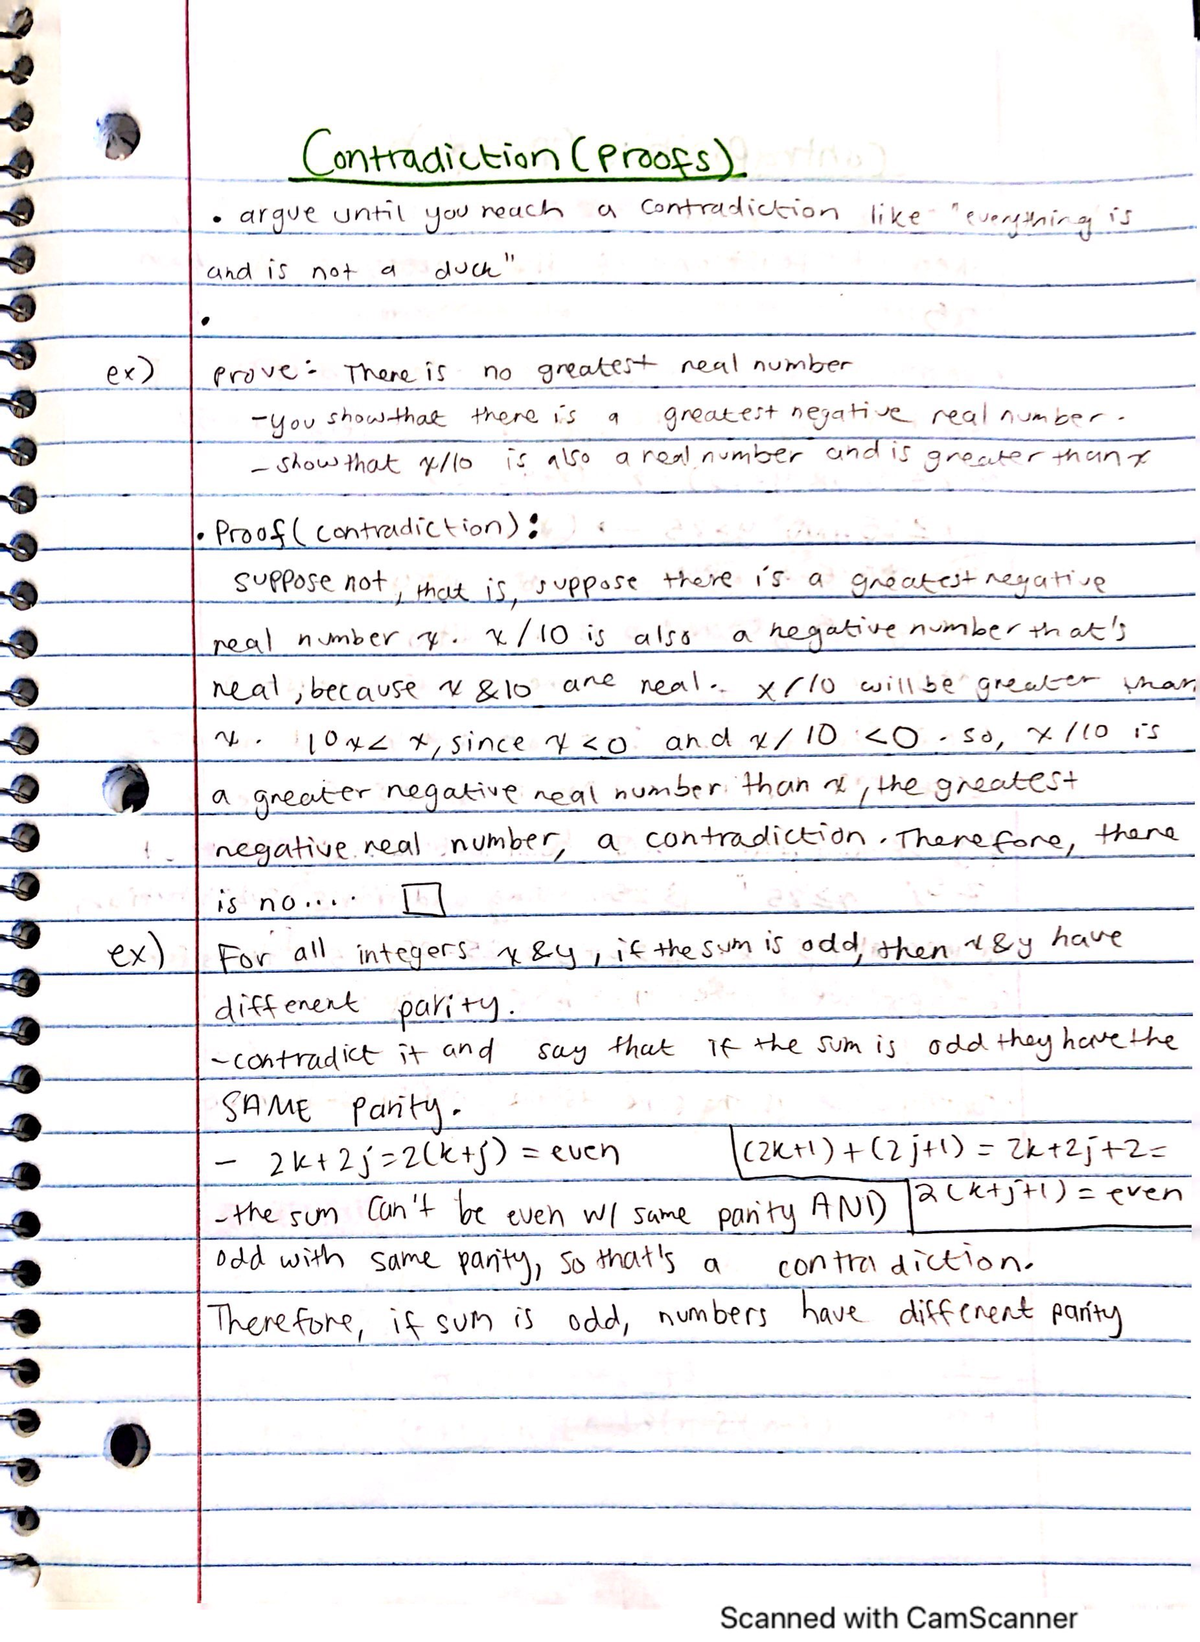 Contradiction (Proofs)
• argue until you reach a contradiction like "everything is
and is not a duck"
•
ex) prove: There is no greatest real number
- you show that there is a greatest negative real number.
- show that x/10 is also a real number and is greater than x
• Proof (contradiction):
suppose not, that is, suppose there is a greatest negative
real number x. x/10 is also a negative number that's
real, because x & 10 are real. x/10 will be greater than
x. 10x < x, since x < 0 and x/10 < 0. so, x/10 is
a greater negative real number than x, the greatest
negative real number, a contradiction. Therefore, there
is no.... □
ex) For all integers x & y, if the sum is odd, then x & y have
different parity.
- contradict it and say that if the sum is odd they have the
SAME parity.
- 2k+2j=2(k+j) = even (2k+1)+(2j+1) = 2k+2j+2=
- the sum can't be even w/ same parity AND 2(k+j+1) = even
odd with same parity, so that's a contradiction.
Therefore, if sum is odd, numbers have different parity
Scanned with CamScanner